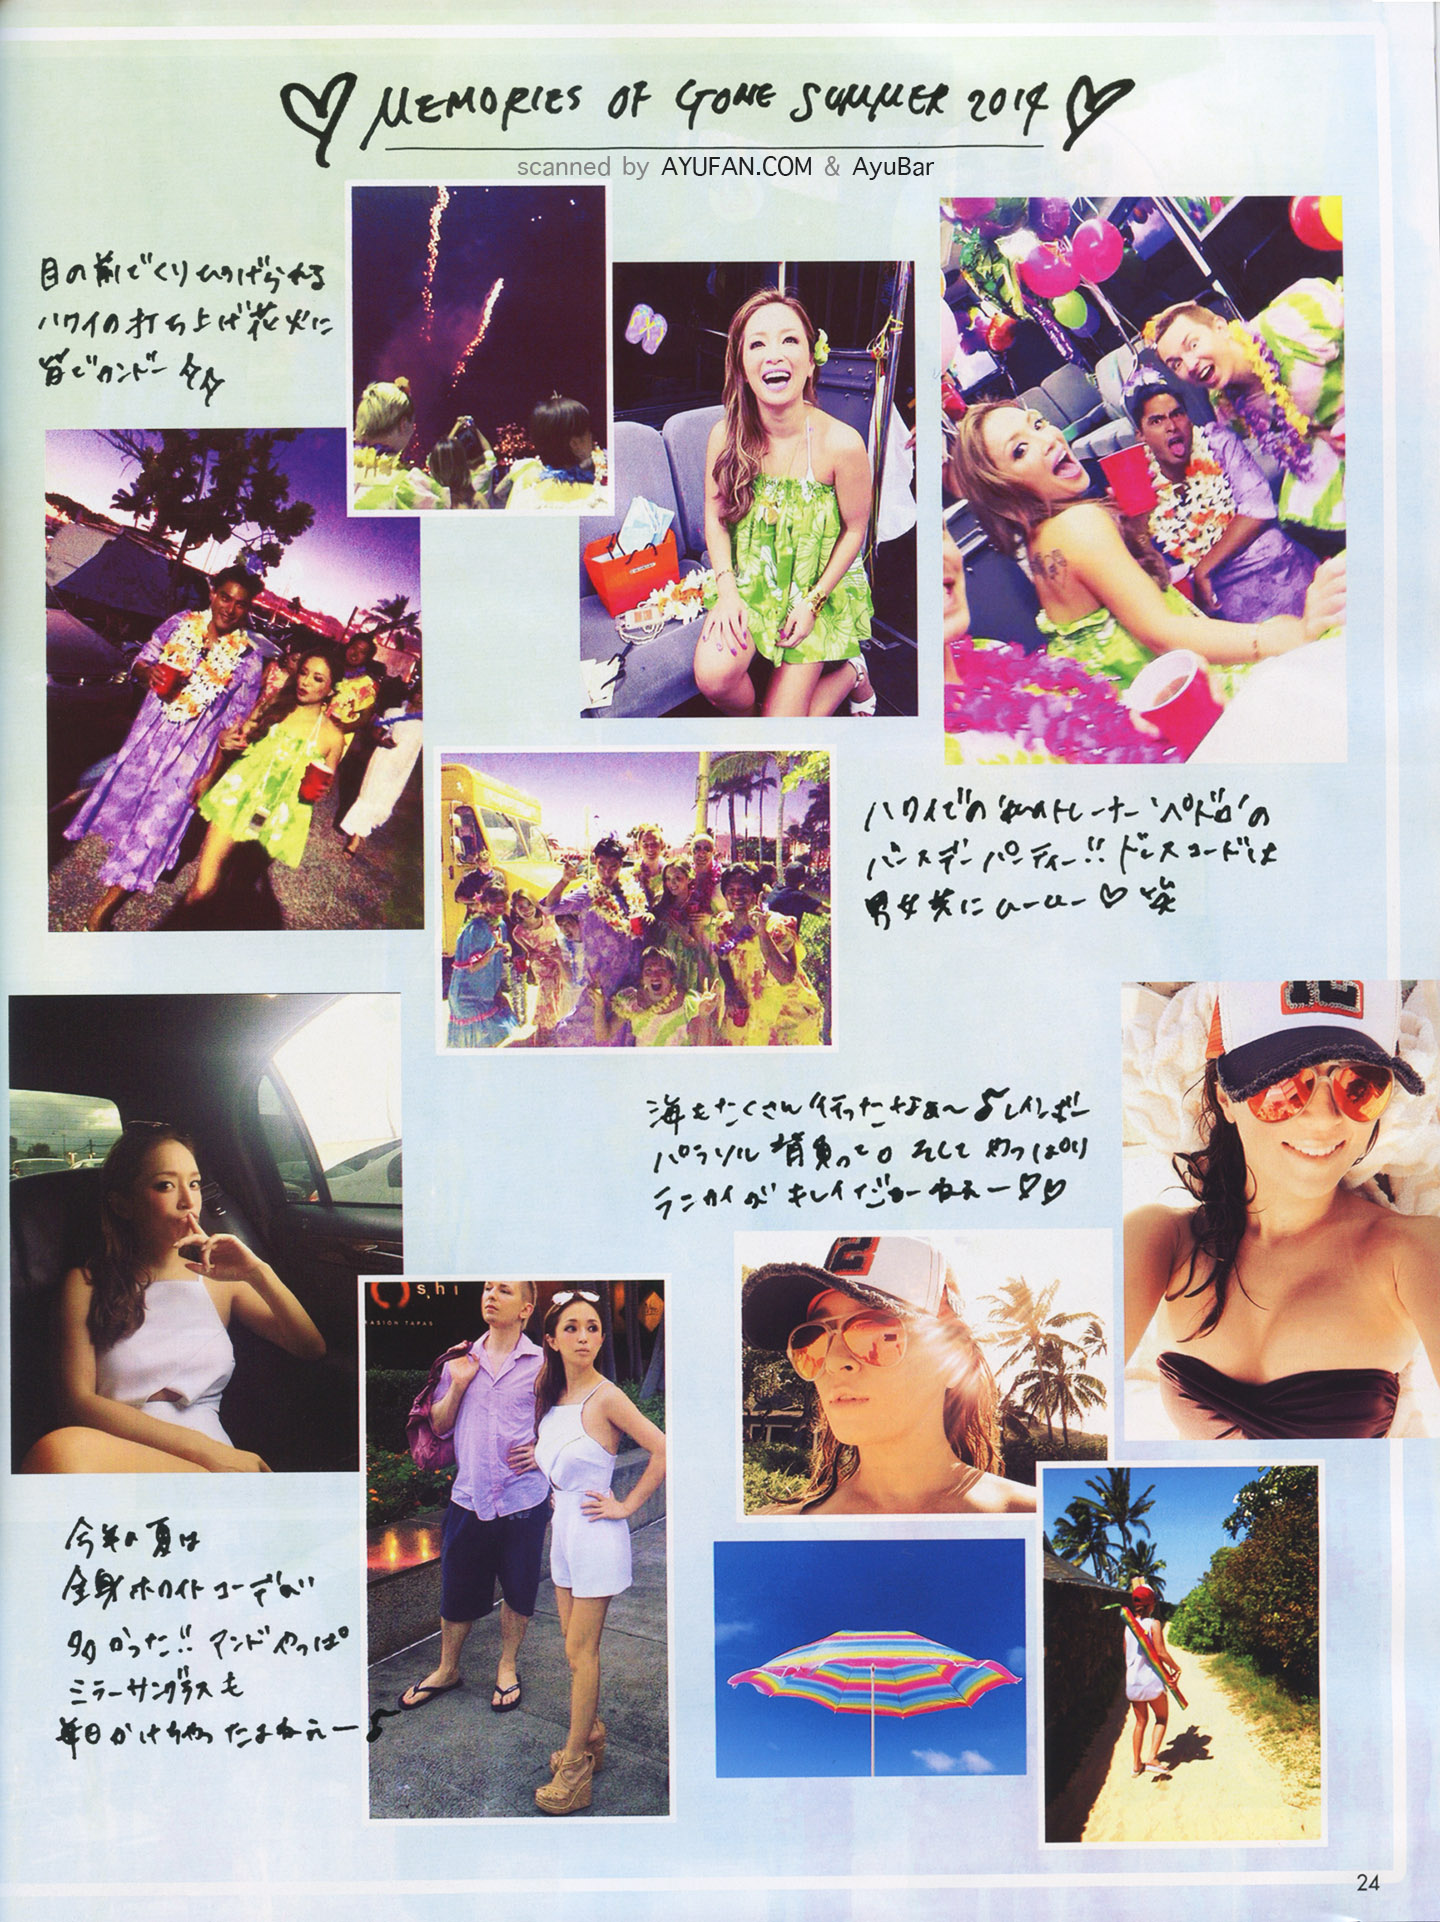 MEMORIES OF GONE SUMMER 2014
scanned by AYUFAN.COM & AyuBar
目の前でくりひろげられる
ハワイの打ち上げ花火に
皆でカンドー
ハワイでの私のトレーナー'ペドロ'の
バースデーパーティー!! ドレスコードは
男女共にムームー♡笑
海もたくさん行ったなぁ〜♪レインボー
パラソル背負って。そしてやっぱり
ラニカイがキレイだよねぇー♡♡
shi
ASIÓN TAPAS
今年の夏は
全身ホワイトコーデが
多かった!! アンドやっぱ
ミラーサングラスも
毎日かけちゃったよねぇー♪
24